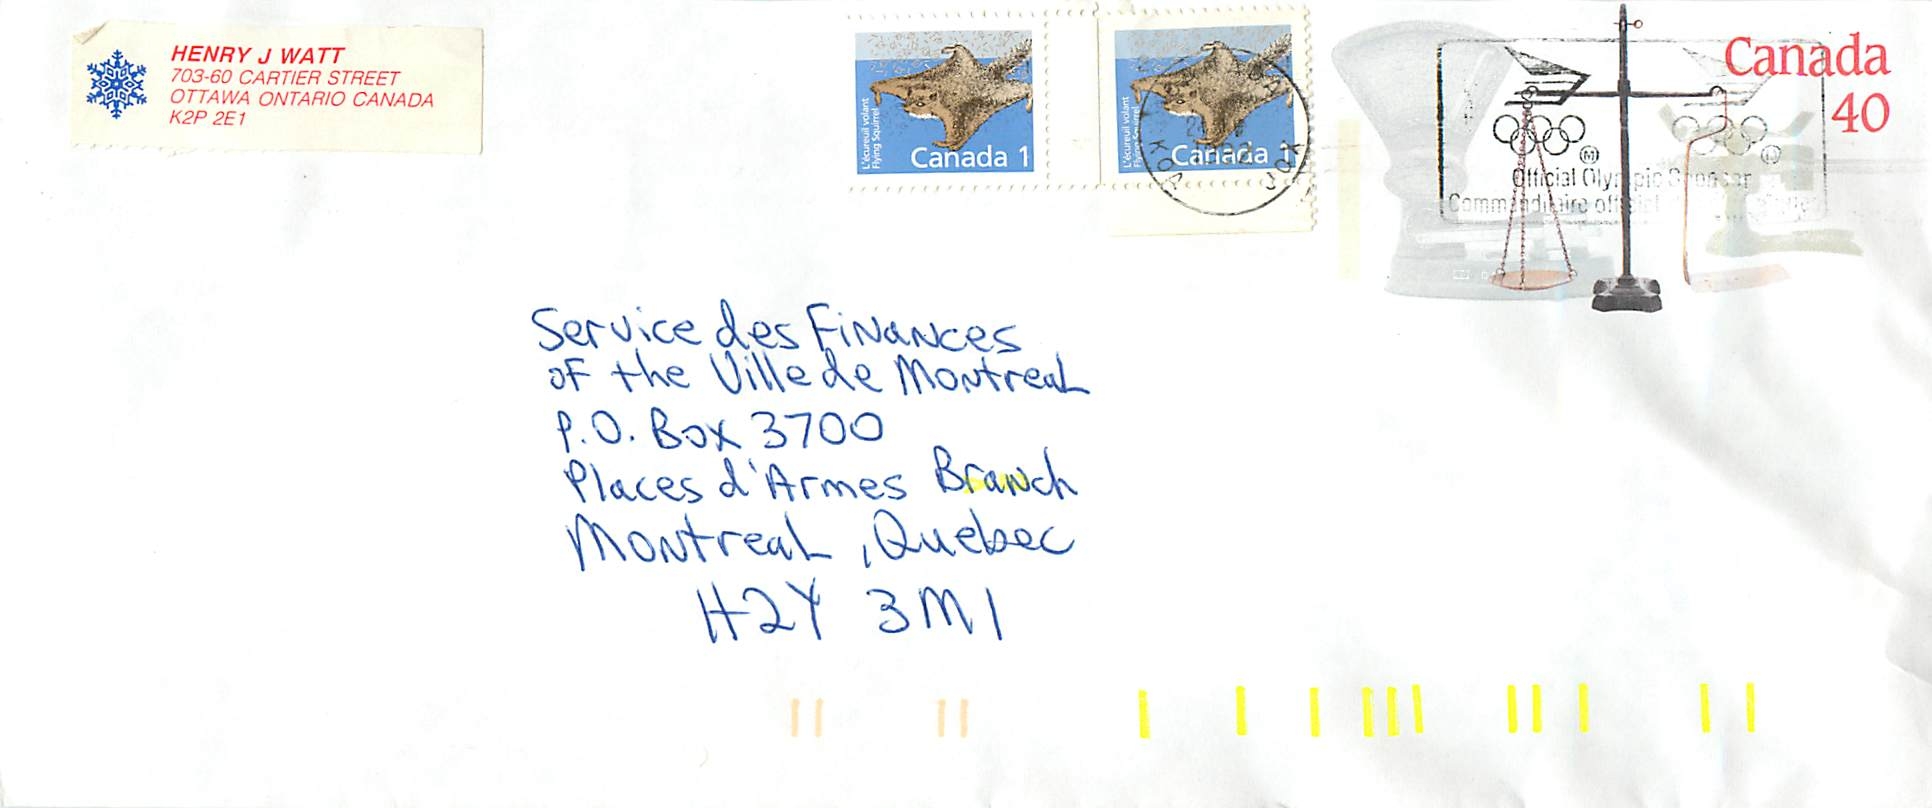 HENRY J WATT
703-60 CARTIER STREET
OTTAWA ONTARIO CANADA
K2P 2E1
L'écureuil volant
Flying Squirrel
Canada 1
L'écureuil volant
Flying Squirrel
Canada 1
K0A
J0X
Canada
40
Official Olympic Sponsor
Commanditaire officiel
Service des Finances
of the Ville de Montreal
P.O. Box 3700
Places d'Armes Branch
Montreal, Quebec
H2Y 3M1